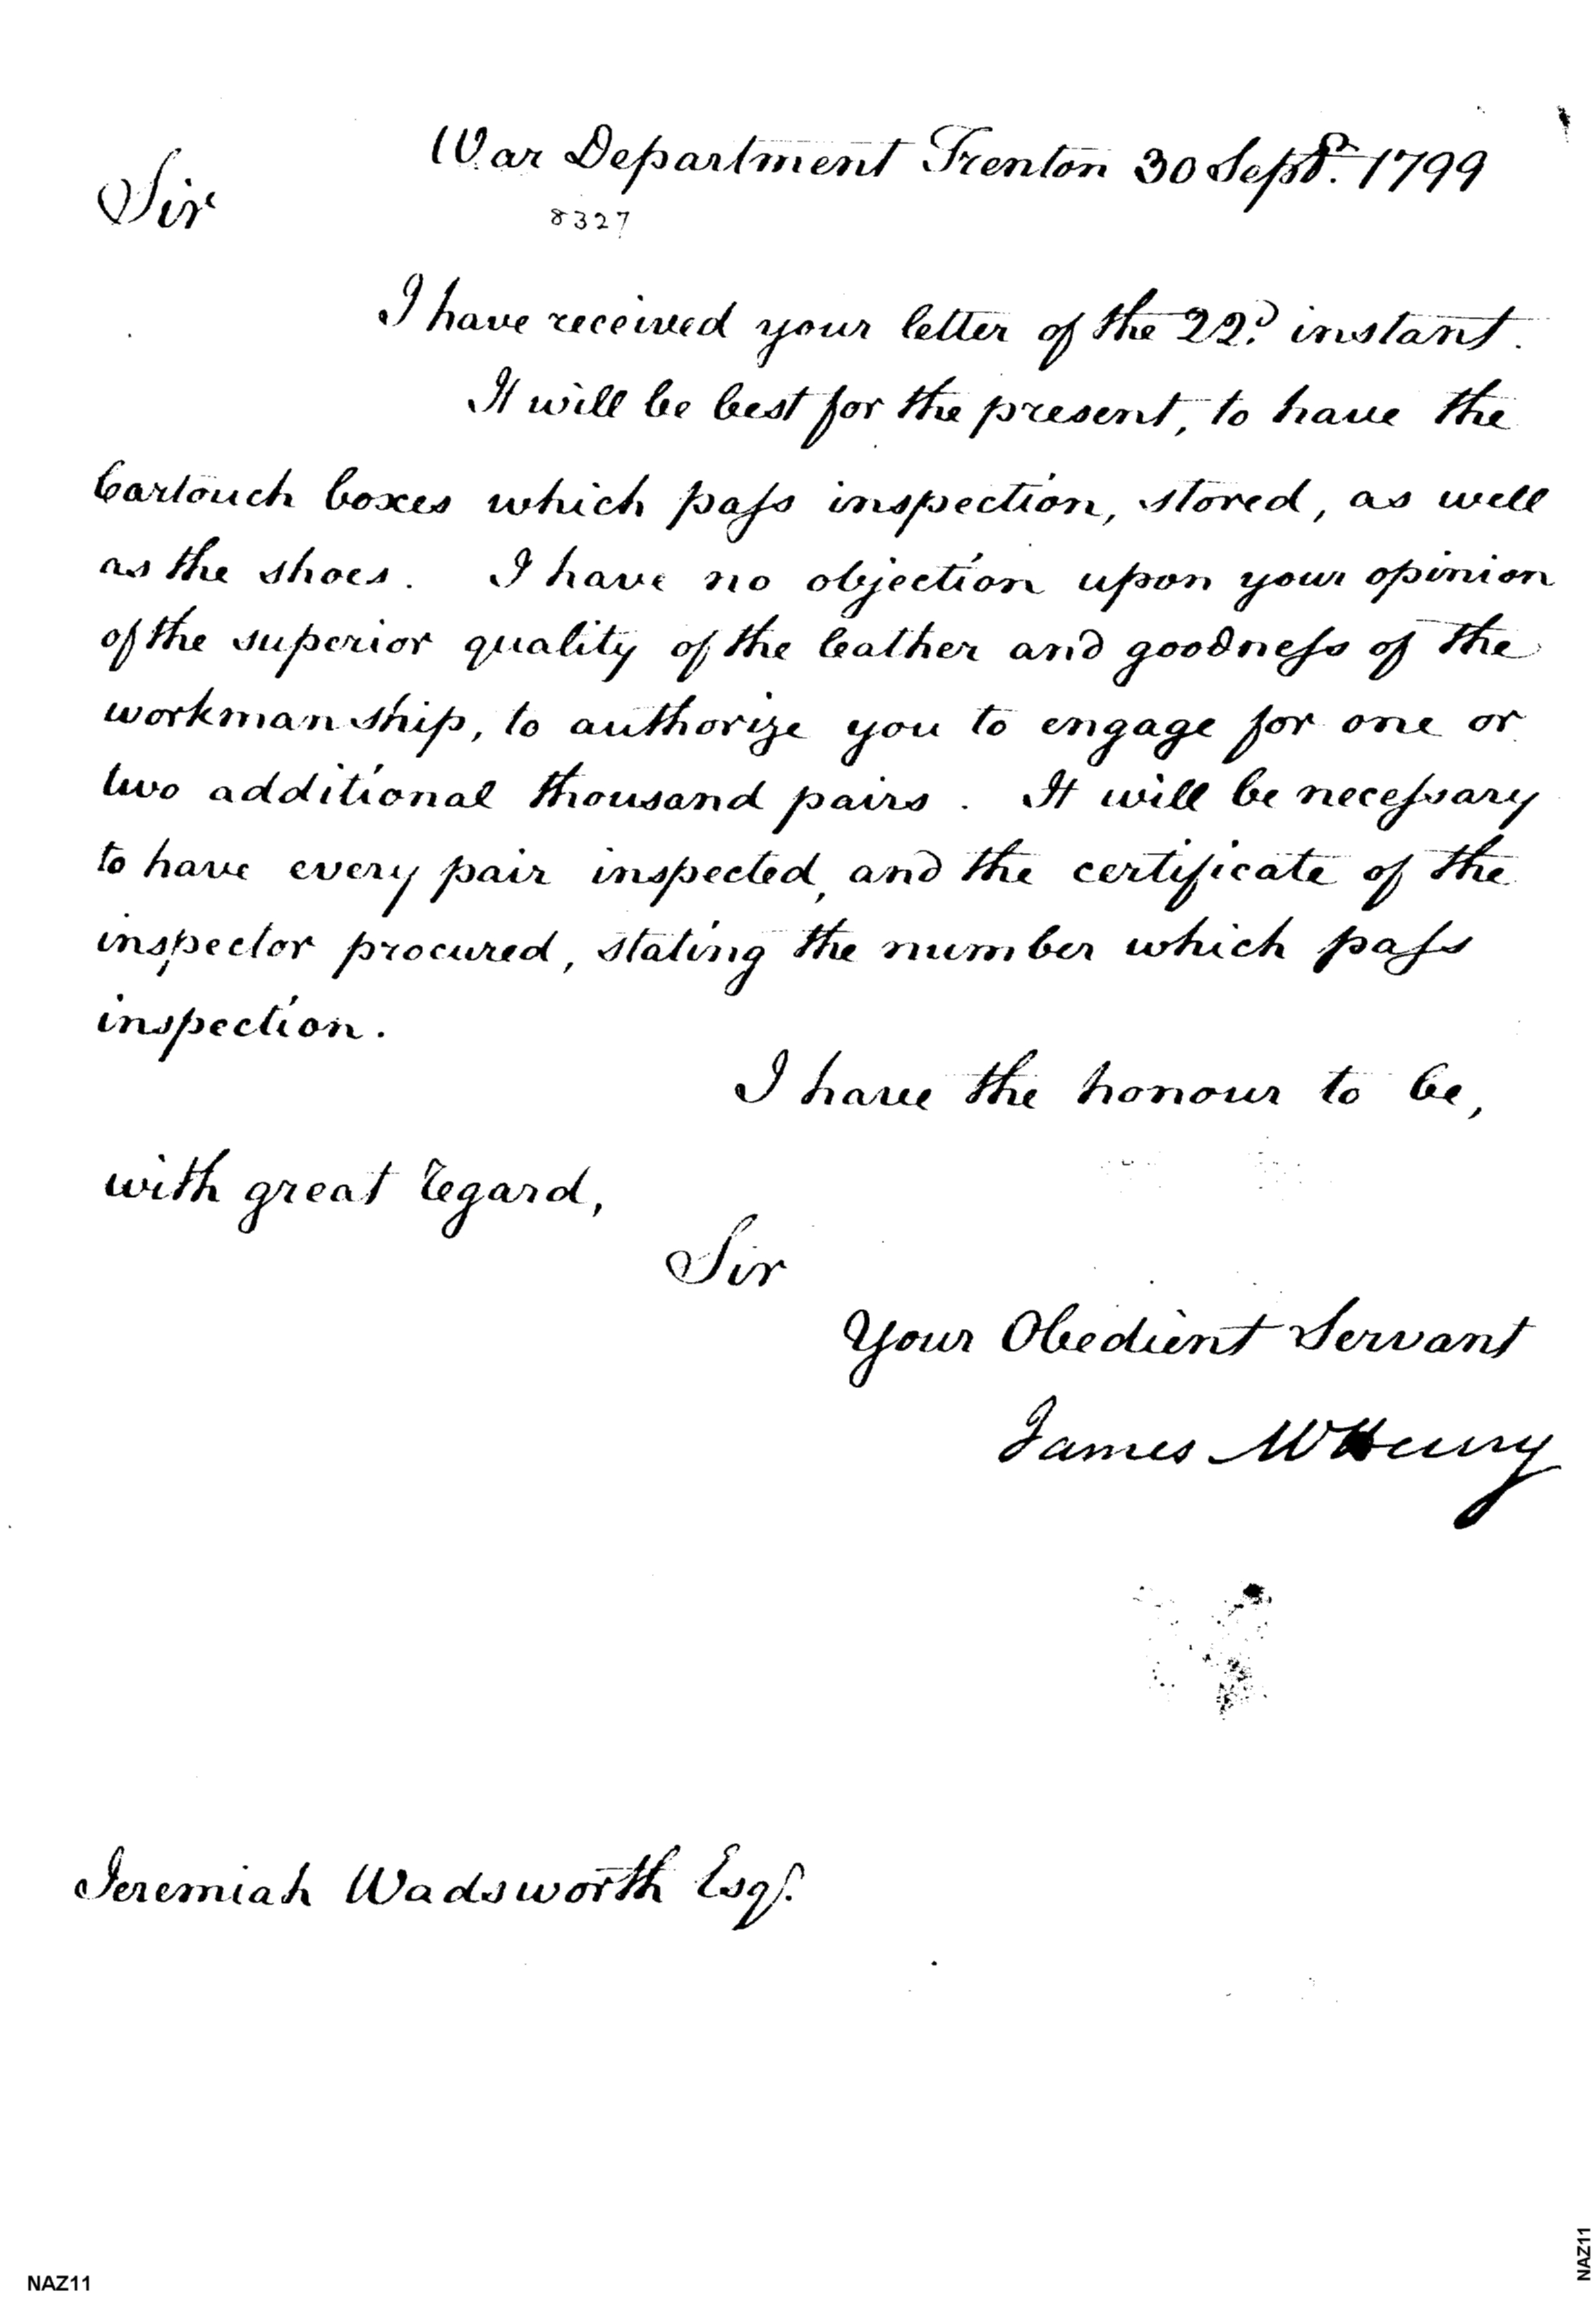 War Department Trenton 30 Sepbr. 1799
Sir
8327
I have received your letter of the 22d. instant.
It will be best for the present, to have the
Cartouch boxes which paſs inspection, stored, as well
as the shoes. I have no objection upon your opinion
of the superior quality of the leather and goodneſs of the
workmanship, to authorize you to engage for one or
two additional thousand pairs. It will be neceſsary
to have every pair inspected, and the certificate of the
inspector procured, stating the number which paſs
inspection.
I have the honour to be,
with great regard,
Sir
Your Obedient Servant
James McHenry
Jeremiah Wadsworth Esqr.
NAZ11
NAZ11